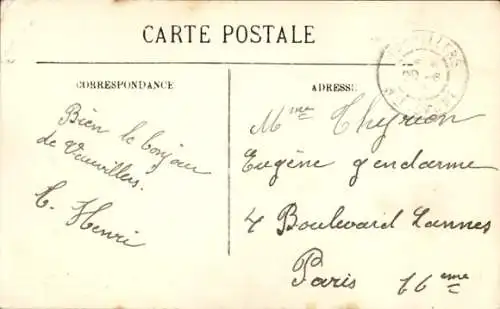 CARTE POSTALE
CORRESPONDANCE
Bien le bonjour
de Vauvillers.
C. Henri
ADRESSE
Mme Thyrion
Eugène gendarme
4 Boulevard Lannes
Paris 16eme